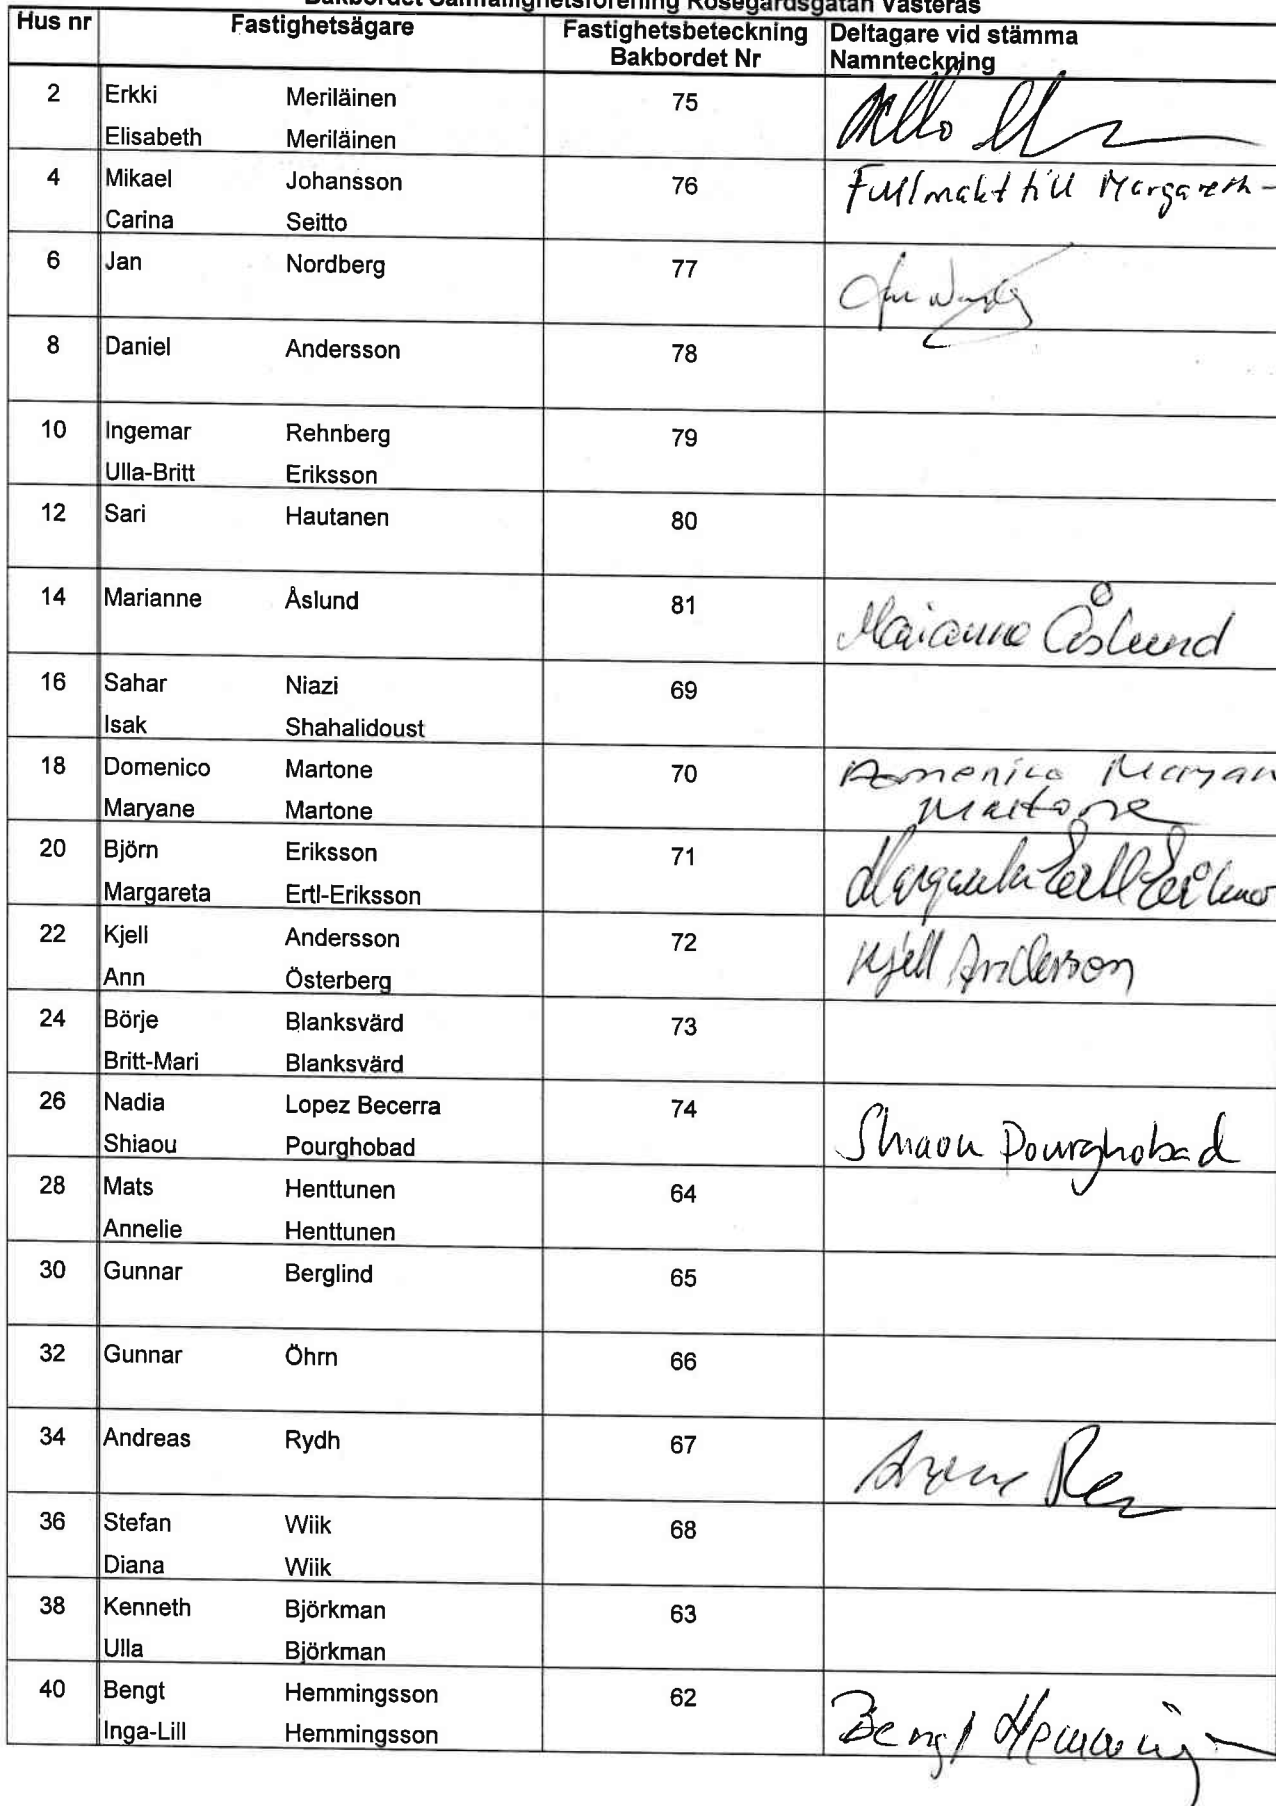 Bakbordet Samfällighetsförening Rosegårdsgatan Västerås
Hus nr Fastighetsägare Fastighetsbeteckning Bakbordet Nr Deltagare vid stämma Namnteckning
2 Erkki Meriläinen 75
Elisabeth Meriläinen
4 Mikael Johansson 76 Fullmakt till Margareth-
Carina Seitto
6 Jan Nordberg 77
8 Daniel Andersson 78
10 Ingemar Rehnberg 79
Ulla-Britt Eriksson
12 Sari Hautanen 80
14 Marianne Åslund 81 Marianne Åslund
16 Sahar Niazi 69
Isak Shahalidoust
18 Domenico Martone 70 Domenico Maryan
Maryane Martone Martone
20 Björn Eriksson 71 Margareta Ertl Eriksson
Margareta Ertl-Eriksson
22 Kjell Andersson 72 Kjell Andersson
Ann Österberg
24 Börje Blanksvärd 73
Britt-Mari Blanksvärd
26 Nadia Lopez Becerra 74
Shiaou Pourghobad Shiaou Pourghobad
28 Mats Henttunen 64
Annelie Henttunen
30 Gunnar Berglind 65
32 Gunnar Öhrn 66
34 Andreas Rydh 67
36 Stefan Wiik 68
Diana Wiik
38 Kenneth Björkman 63
Ulla Björkman
40 Bengt Hemmingsson 62 Bengt Hemming
Inga-Lill Hemmingsson